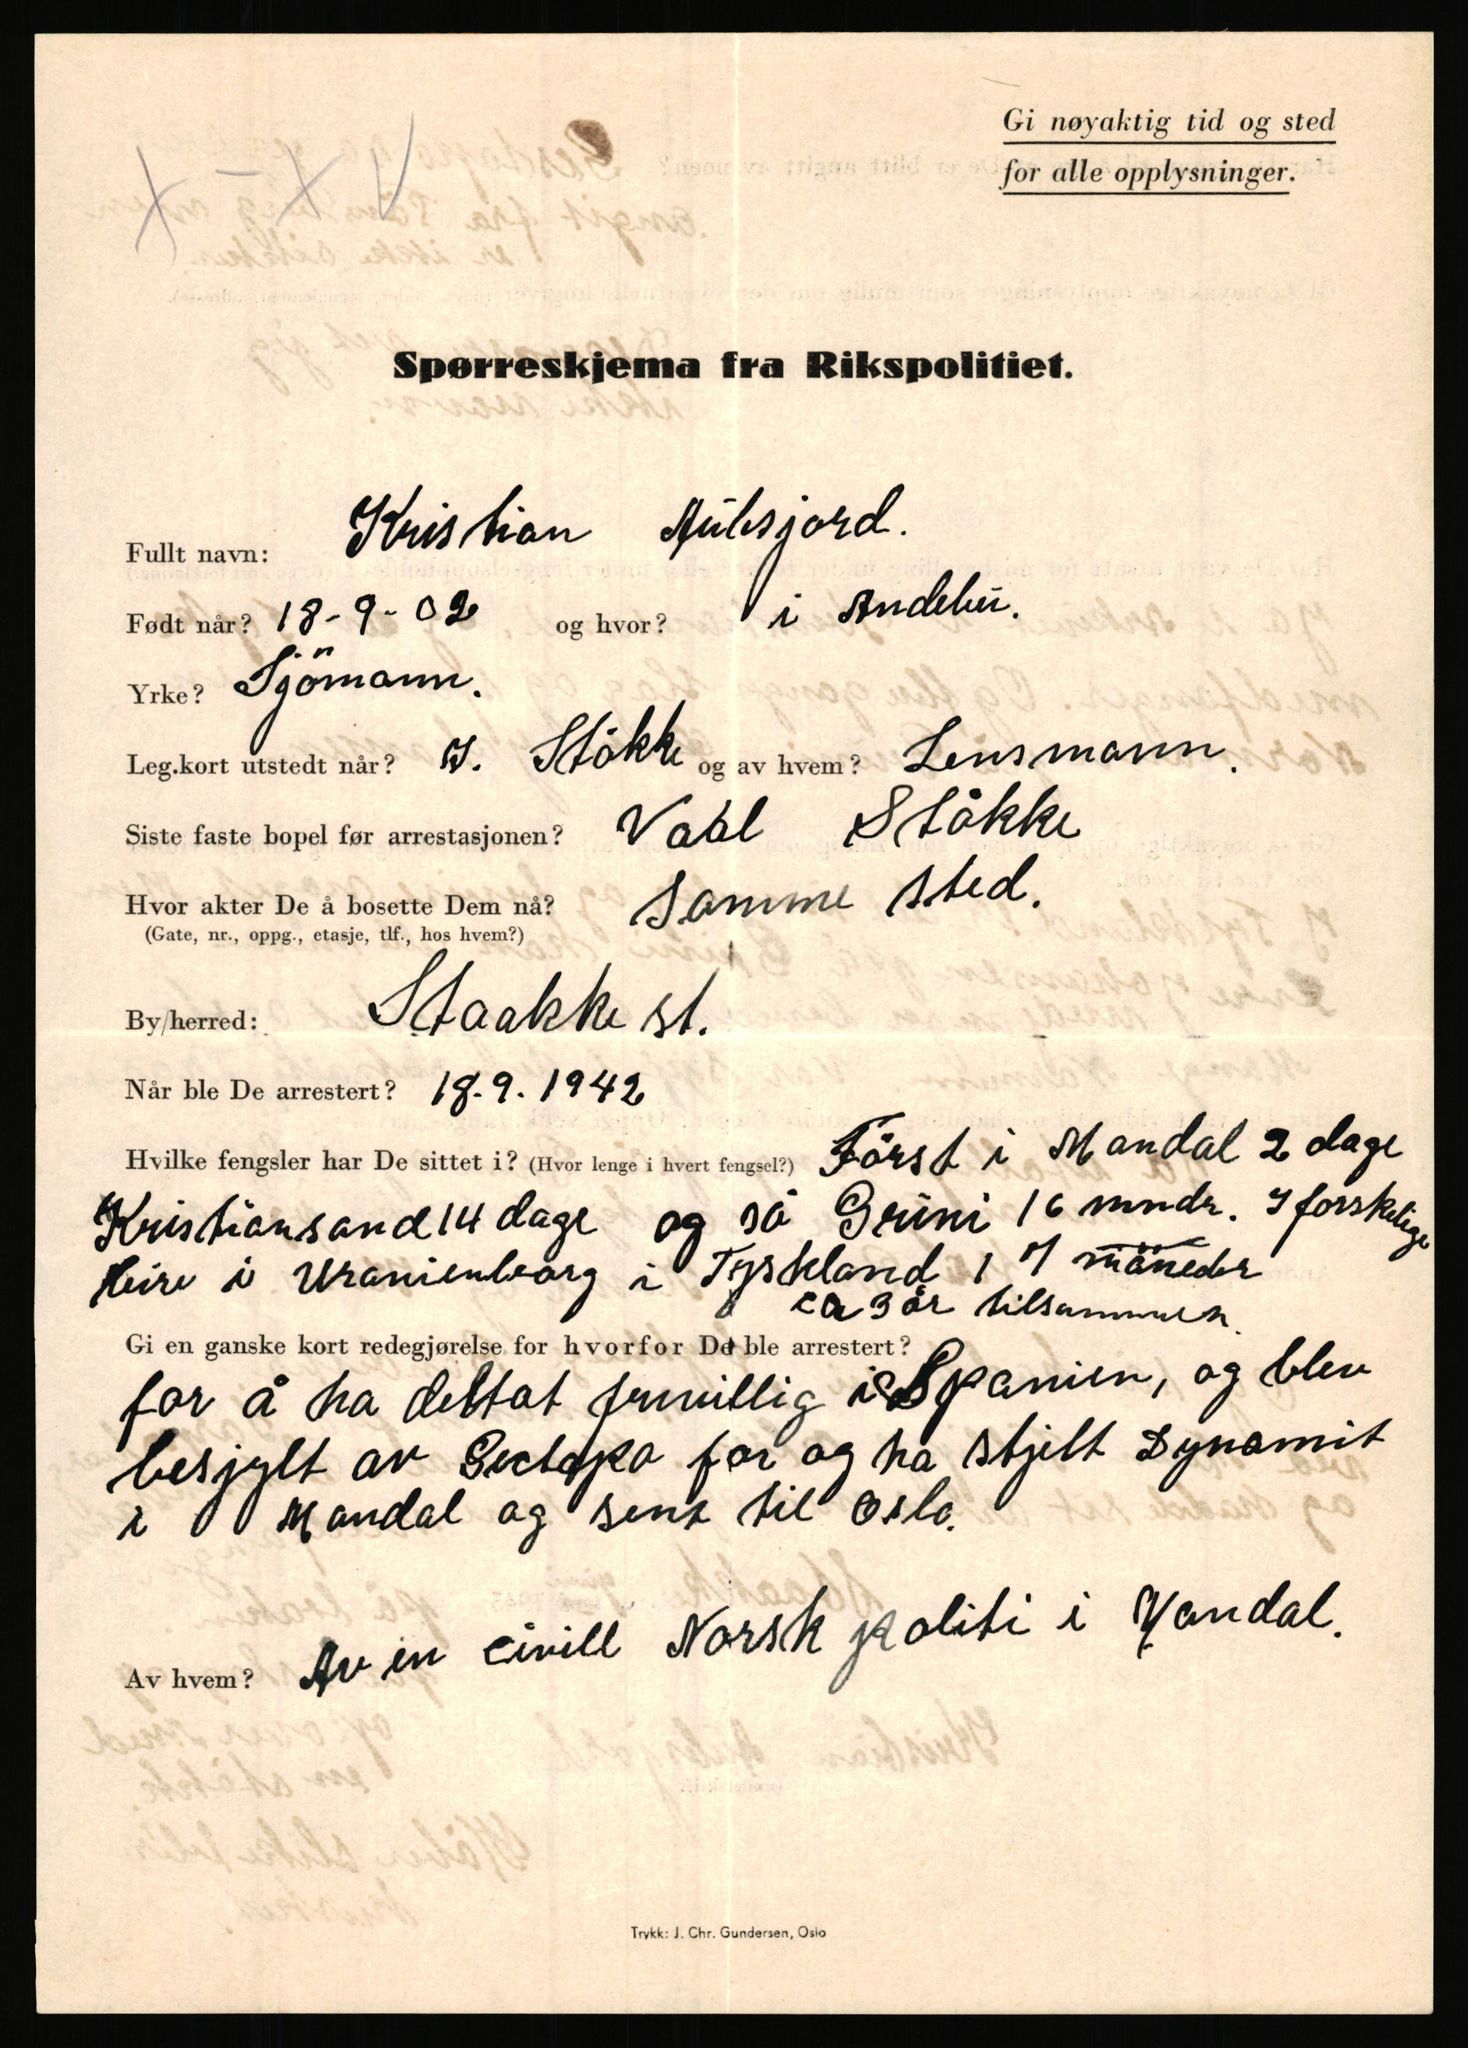 Gi nøyaktig tid og sted
for alle opplysninger.
Spørreskjema fra Rikspolitiet.
Fullt navn: Kristian Aulesjord.
Født når? 18-9-02 og hvor? i Andebu.
Yrke? Sjömann.
Leg.kort utstedt når? I. Stökke og av hvem? Lensmann.
Siste faste bopel før arrestasjonen? Vaal Ståkke
Hvor akter De å bosette Dem nå? Samme sted.
(Gate, nr., oppg., etasje, tlf., hos hvem?)
By/herred: Staakke st.
Når ble De arrestert? 18.9.1942
Hvilke fengsler har De sittet i? (Hvor lenge i hvert fengsel?) Först i Mandal 2 dage
Kristiansand 14 dage og så Grini 16 mndr. I forskelige
leire i Uranienborg i Tyskland 17 måneder
ca 3 år tilsammen.
Gi en ganske kort redegjørelse for hvorfor De ble arrestert?
for å ha deltat frivillig i Spanien, og blev
besjylt av Gestapo for og ha stjelt Dynamit
i Mandal og sent til Oslo.
Av hvem? Av en civill Norsk politi i Mandal.
Trykk: J. Chr. Gundersen, Oslo